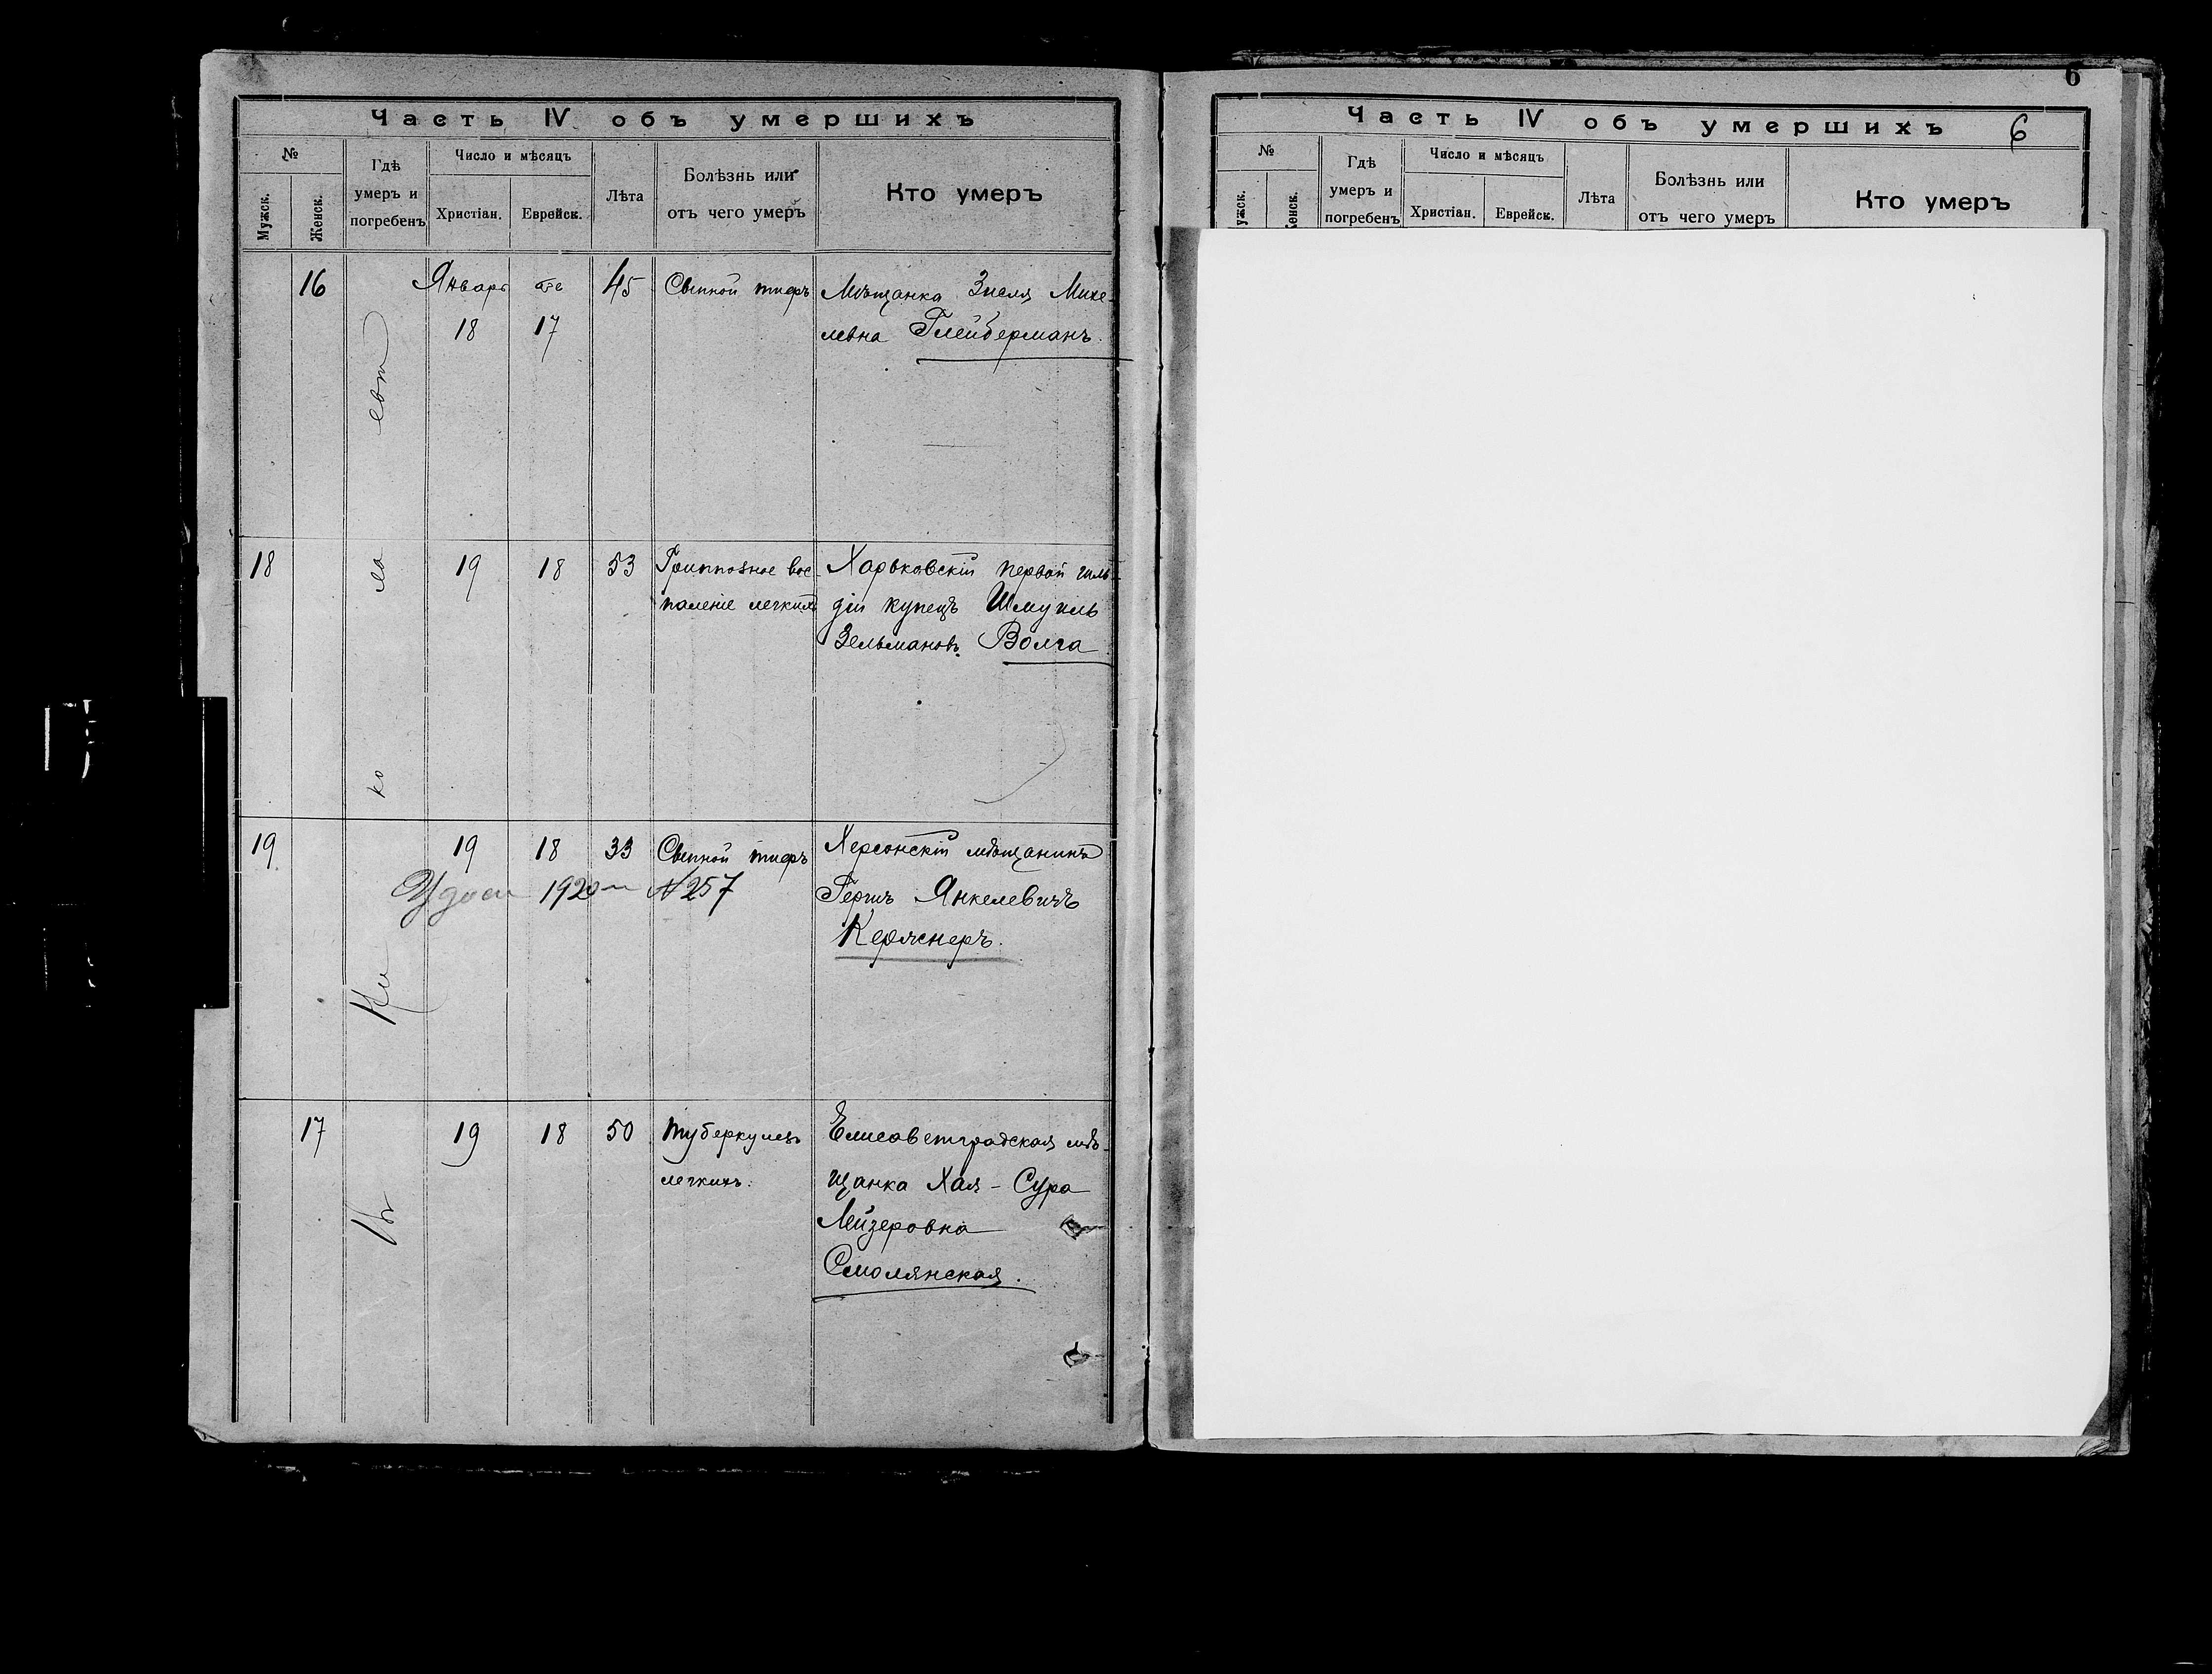 Часть IV объ умершихъ
№
Мужск.
Женск.
Гдѣ
умеръ и
погребенъ
Число и мѣсяцъ
Христіан.
Еврейск.
Лѣта
Болѣзнь или
отъ чего умеръ
Кто умеръ
16
Январь
18
17
45
Сыпной тифъ
Мѣщанка Зисля Михе-
левна Глейберманъ.
18
19
18
53
Гриппозное вос-
паленіе легкихъ
Харьковскій первой гиль-
діи купецъ Шмуиль
Зельмановъ Волга
19
19
18
33
Сыпной тифъ
Херсонскій мѣщанинъ
Гершъ Янкелевичъ
Керснеръ.
1920 N 257
17
19
18
50
туберкулезъ
легкихъ.
Елисаветградская мѣ-
щанка Хая-Сура
Лейзеровна
Смолянская.
Въ Ни ко ла евѣ
6
Часть IV объ умершихъ
6
№
ужск.
Женск.
Гдѣ
умеръ и
погребенъ
Число и мѣсяцъ
Христіан.
Еврейск.
Лѣта
Болѣзнь или
отъ чего умеръ
Кто умеръ